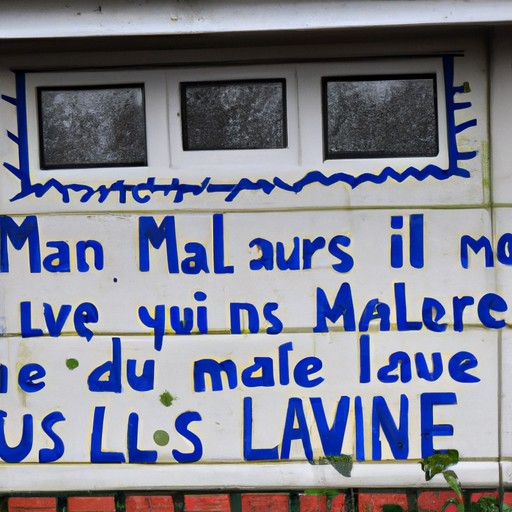 Man MaL aurs il mo
Lve yuins MaLere
ne du male lave
us LLs LAVINE